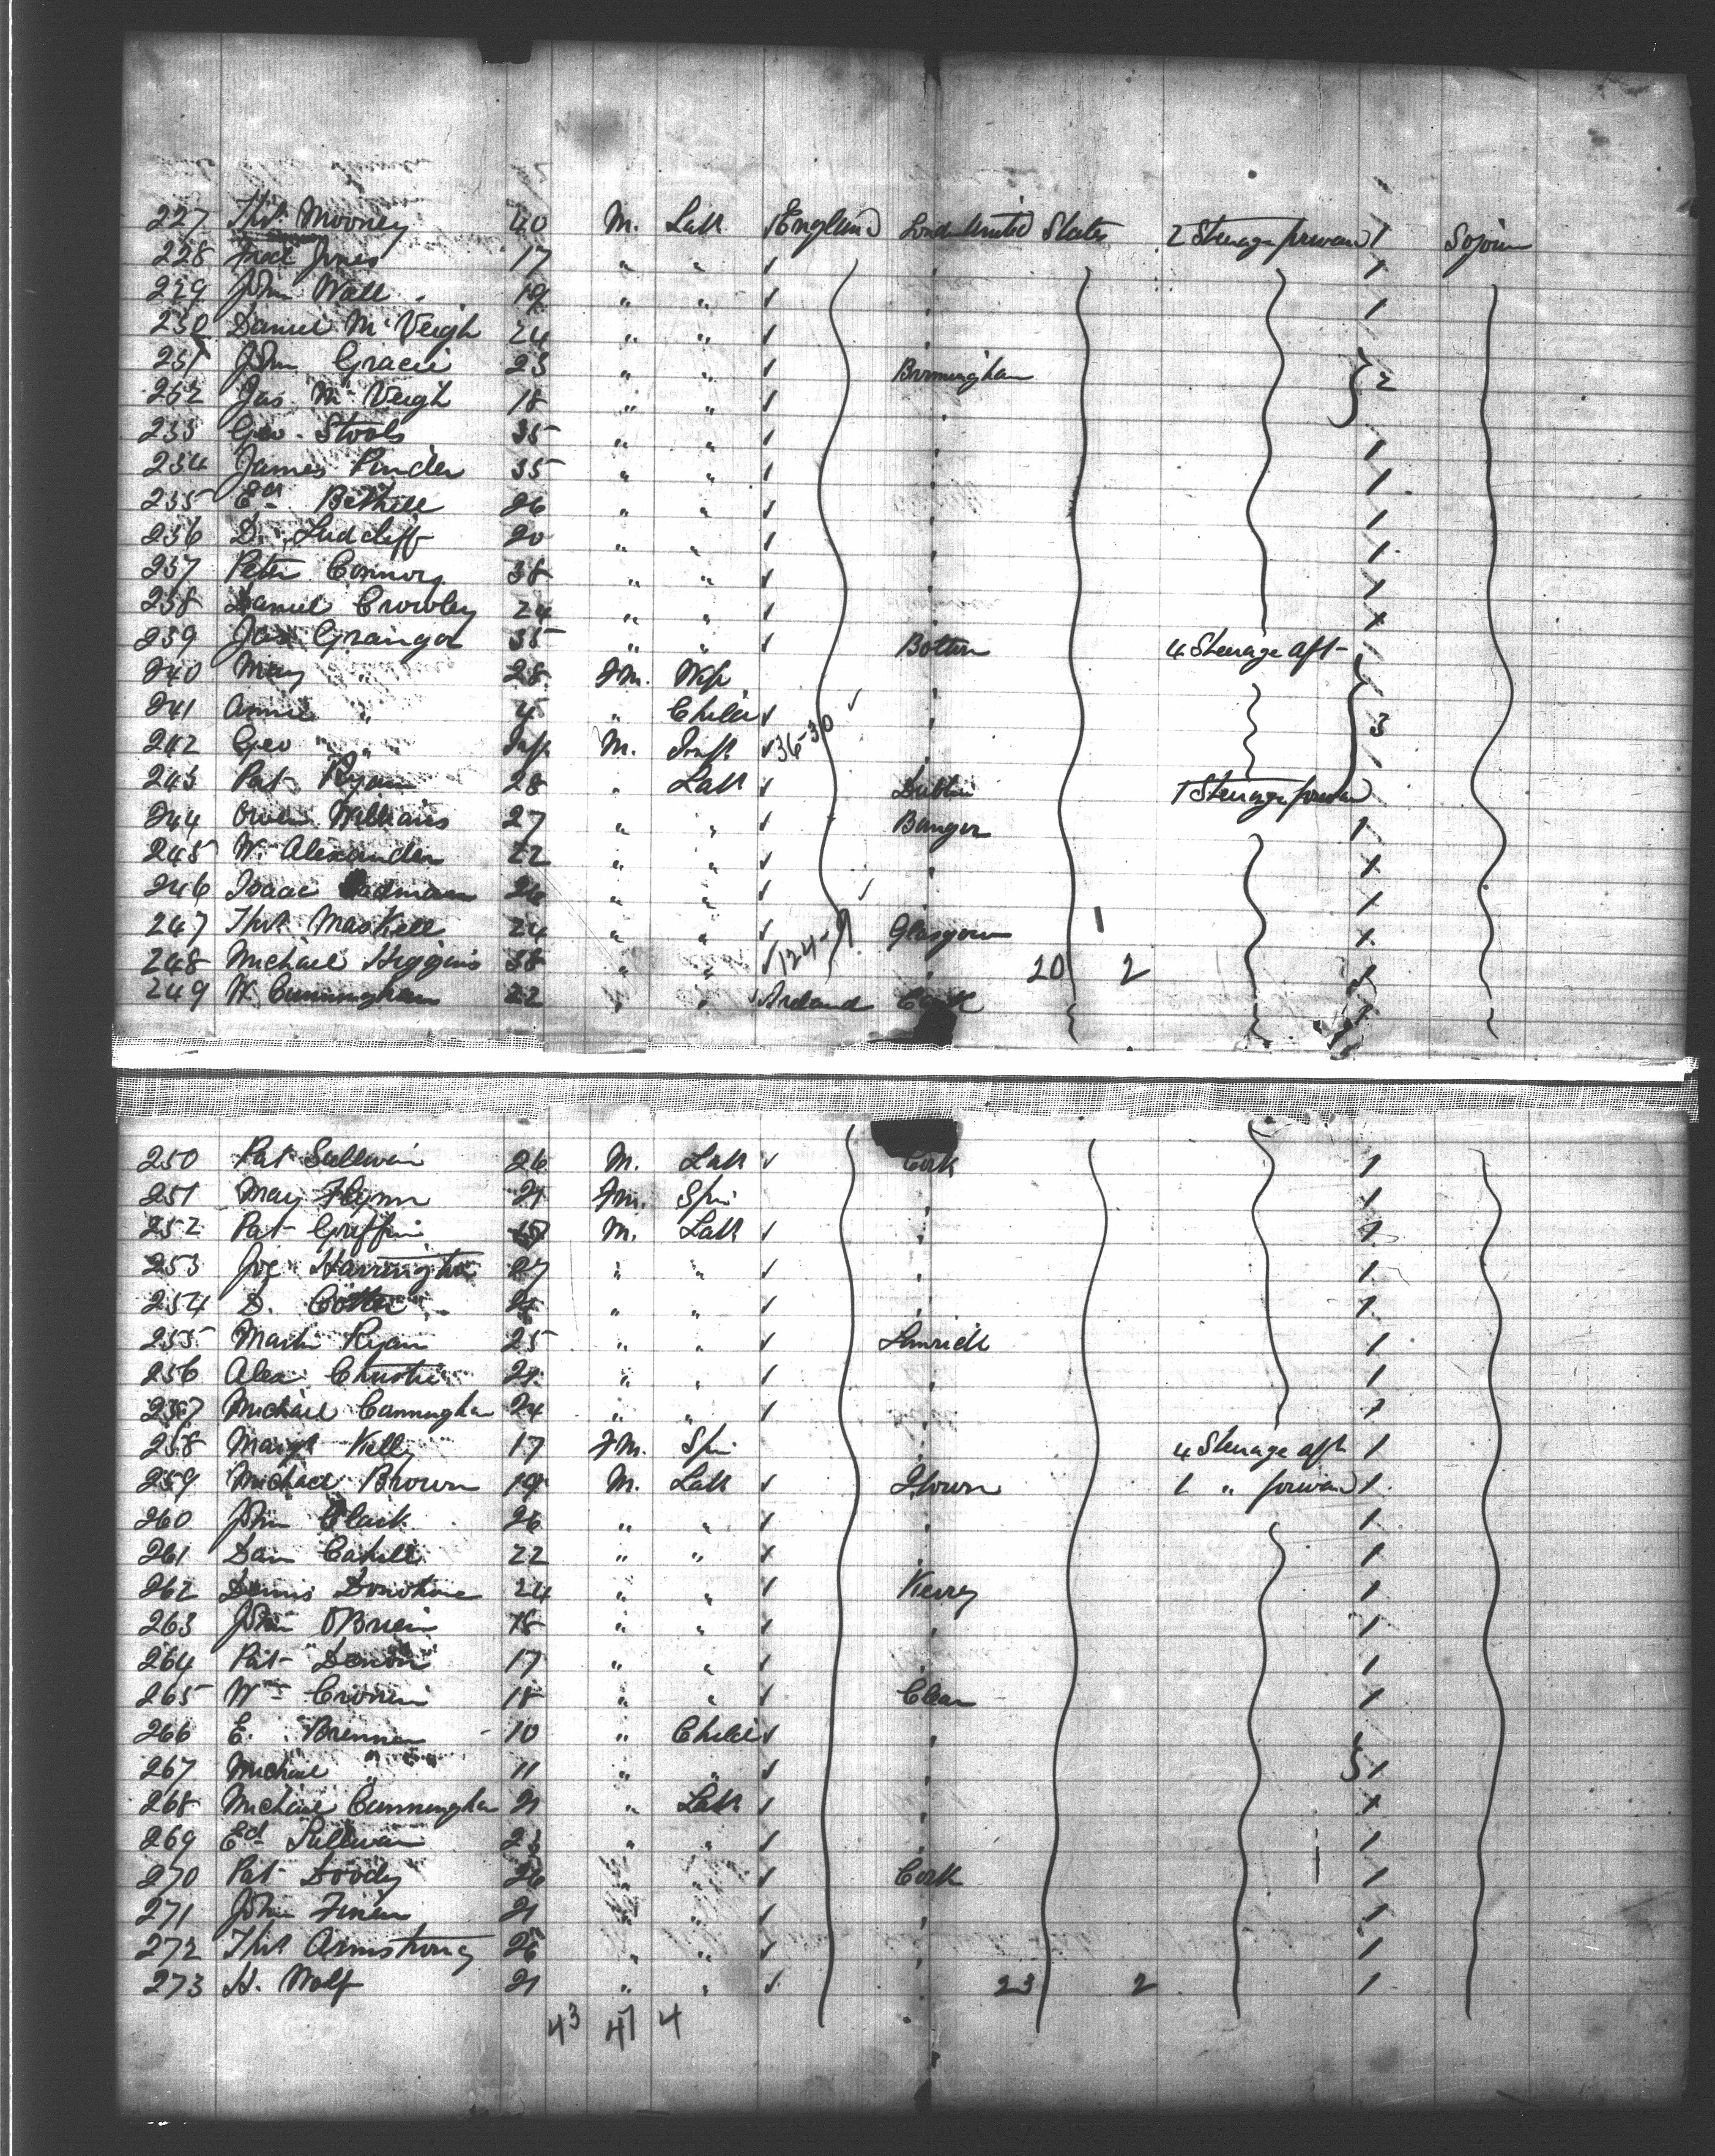 227 Thos Mooney 40 M. Labr England Lond United States 2 Steerage forward 1 Sojourn
228 Fred Jones 17 " " ✓ " 1
229 John Wall 19 " " ✓ " 1
230 Daniel McVeigh 24 " " ✓ "
231 John Gracie 23 " " ✓ Birmingham } 2
232 Jas McVeigh 18 " " ✓ "
233 Geo. Stools 35 " " ✓ " 1
234 James Pinder 35 " " ✓ " 1
235 Ed Bethell 26 " " ✓ " 1
236 D. Sudcliff 20 " " ✓ " 1
237 Peter Connory 38 " " ✓ " 1
238 Daniel Crowley 24 " " ✓ " 1
239 Jas Granger 35 " " ✓ Bolton 4 Steerage aft
240 Mary " 28 Fm. Wife "
241 Annie " 4 " Child ✓ " 3
242 Geo " Inft M. Inft ✓ 36-30 "
243 Pat Ryan 28 " Labr ✓ Dublin 1 Steerage forwar
244 Owen Williams 27 " " ✓ Bangor 1
245 W. Alexander 22 " " ✓ " 1
246 Isaac 24 " " ✓ " 1
247 Thos Maskell 24 " " ✓ Glasgow 1
248 Michael Higgins 38 " " ✓ 124-9 " 20 2 1
249 W. Cunningham 22 " " Ireland Cork 1
250 Pat Sullivan 26 M. Labr ✓ Cork 1
251 Mary Flynn 21 Fm. Spr " 1
252 Pat Griffin M. Labr ✓ " 1
253 Joe Harrington 27 " " ✓ " 1
254 D. Cotter " " ✓ " 1
255 Martin Ryan 25 " " ✓ Limrick 1
256 Alex Christie 21 " " ✓ " 1
257 Michael Cunningham 24 " " ✓ " 1
258 Margt Kelly 17 Fm. Spr 4 Steerage aft 1
259 Michael Brown 19 M. Labr ✓ 1 " forward 1
260 John Clark 26 " " ✓ " 1
261 Dan Cahill 22 " " ✓ " 1
262 Dennis Donohue 24 " " ✓ Kerry 1
263 John OBrien 18 " " ✓ " 1
264 Pat 17 " " ✓ " 1
265 Wm Cronin 18 " " ✓ Clare 1
266 E. Brennan 10 " Child ✓ "
267 Michael " 11 " " ✓ " 1
268 Michael Cunningham 21 " Labr ✓ " 1
269 Ed Sullivan 23 " " ✓ " 1
270 Pat Doody 26 " " ✓ Cork 1
271 John Finen 21 " " ✓ " 1
272 Thos Armstrong 26 " " ✓ " 1
273 H. Wolf 21 " " ✓ 23 2 1
43 47 4